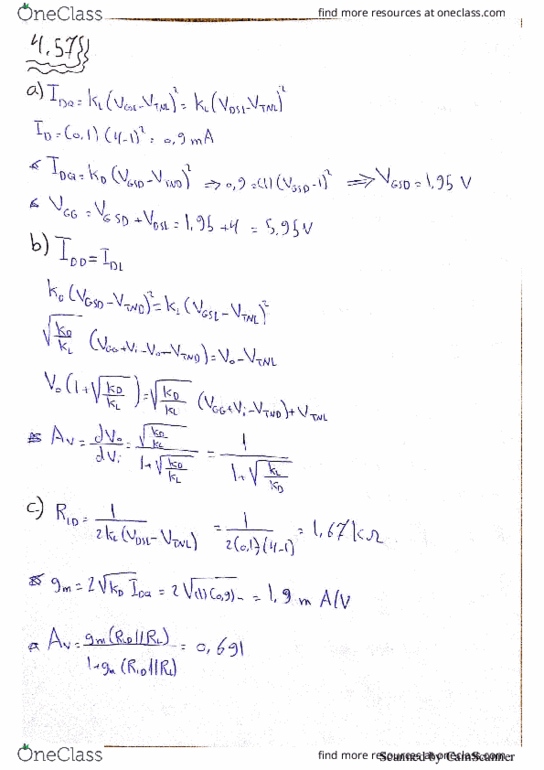 OneClass
find more resources at oneclass.com
4.57
a) I_DQ = k_L (V_GSL - V_TNL)² = k_L (V_DSL - V_TNL)²
I_D = (0,1) (4-1)² = 0,9 mA
I_DQ = k_D (V_GSD - V_TND)² ⇒ 0,9 = (1) (V_GSD - 1)² ⇒ V_GSD = 1,95 V
V_GG = V_GSD + V_DSL = 1,95 + 4 = 5,95 V
b) I_DD = I_DL
k_D (V_GSD - V_TND)² = k_L (V_GSL - V_TNL)²
√(k_D/k_L) (V_GG + V_i - V_o - V_TND) = V_o - V_TNL
V_o (1 + √(k_D/k_L)) = √(k_D/k_L) (V_GG + V_i - V_TND) + V_TNL
A_v = dV_o/dV_i = √(k_D/k_L) / (1 + √(k_D/k_L)) = 1 / (1 + √(k_L/k_D))
c) R_LD = 1 / (2 k_L (V_DSL - V_TNL)) = 1 / (2 (0,1) (4-1)) = 1,67 kΩ
g_m = 2√(k_D I_DQ) = 2√((1) (0,9)) = 1,9 m A/V
A_v = g_m (R_LD || R_L) / (1 + g_m (R_LD || R_L)) = 0,691
OneClass
find more resources at oneclass.com
Scanned by CamScanner